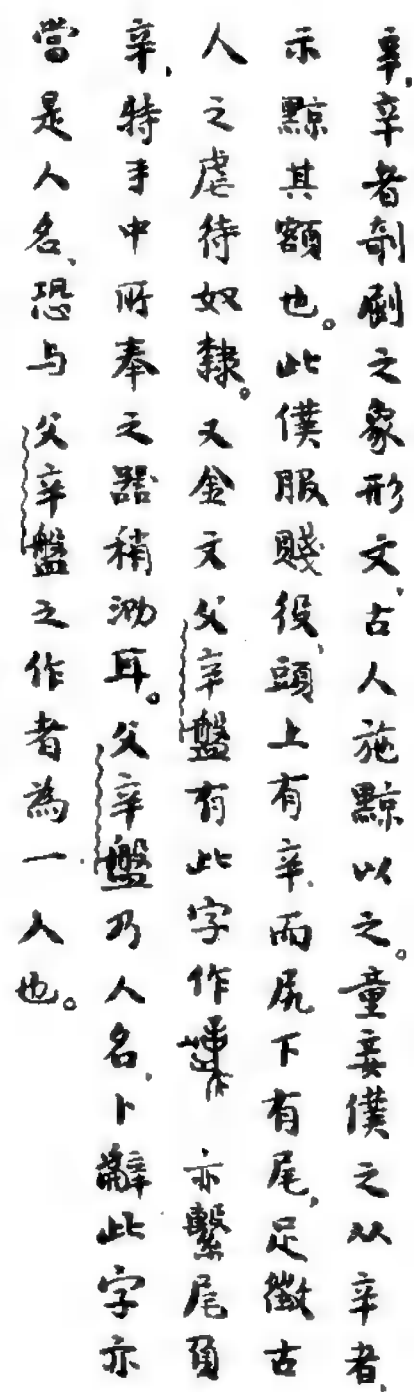 辛，辛者剞劂之象形文，古人施黥以之。童妾僕之从辛者，
示黥其額也。此僕服賤役，頭上有辛，而尻下有尾，足徵古
人之虐待奴隸。又金文父辛盤有此字作 亦繫尾負
辛，特手中所奉之器稍泐耳。父辛盤乃人名，卜辭此字亦
當是人名，恐与父辛盤之作者為一人也。